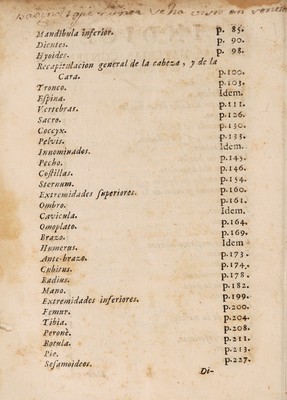 Mandibula inferior. p. 85.
Dientes. p. 90.
Hyoides. p. 98.
Recapitulacion general de la cabeza, y de la
Cara. p.100.
Tronco. p.103.
Espina. Idem.
Vertebras. p.111.
Sacro. p.126.
Coccyx. p.130.
Pelvis. p.133.
Innominados. Idem.
Pecho. p.145.
Costillas. p.146.
Sternum. p.154.
Extremidades superiores. p.160.
Ombro. p.161.
Cavicula. Idem.
Omoplato. p.164.
Brazo. p.169.
Humerus. Idem
Ante-brazo. p.173.
Cubitus. p.174.
Radius. p.178.
Mano. p.182.
Extremidades inferiores. p.199.
Femur. p.200.
Tibia. p.204.
Peronè. p.208.
Rotula. p.211.
Pie. p.213.
Sesamoideos. p.227.
Di-